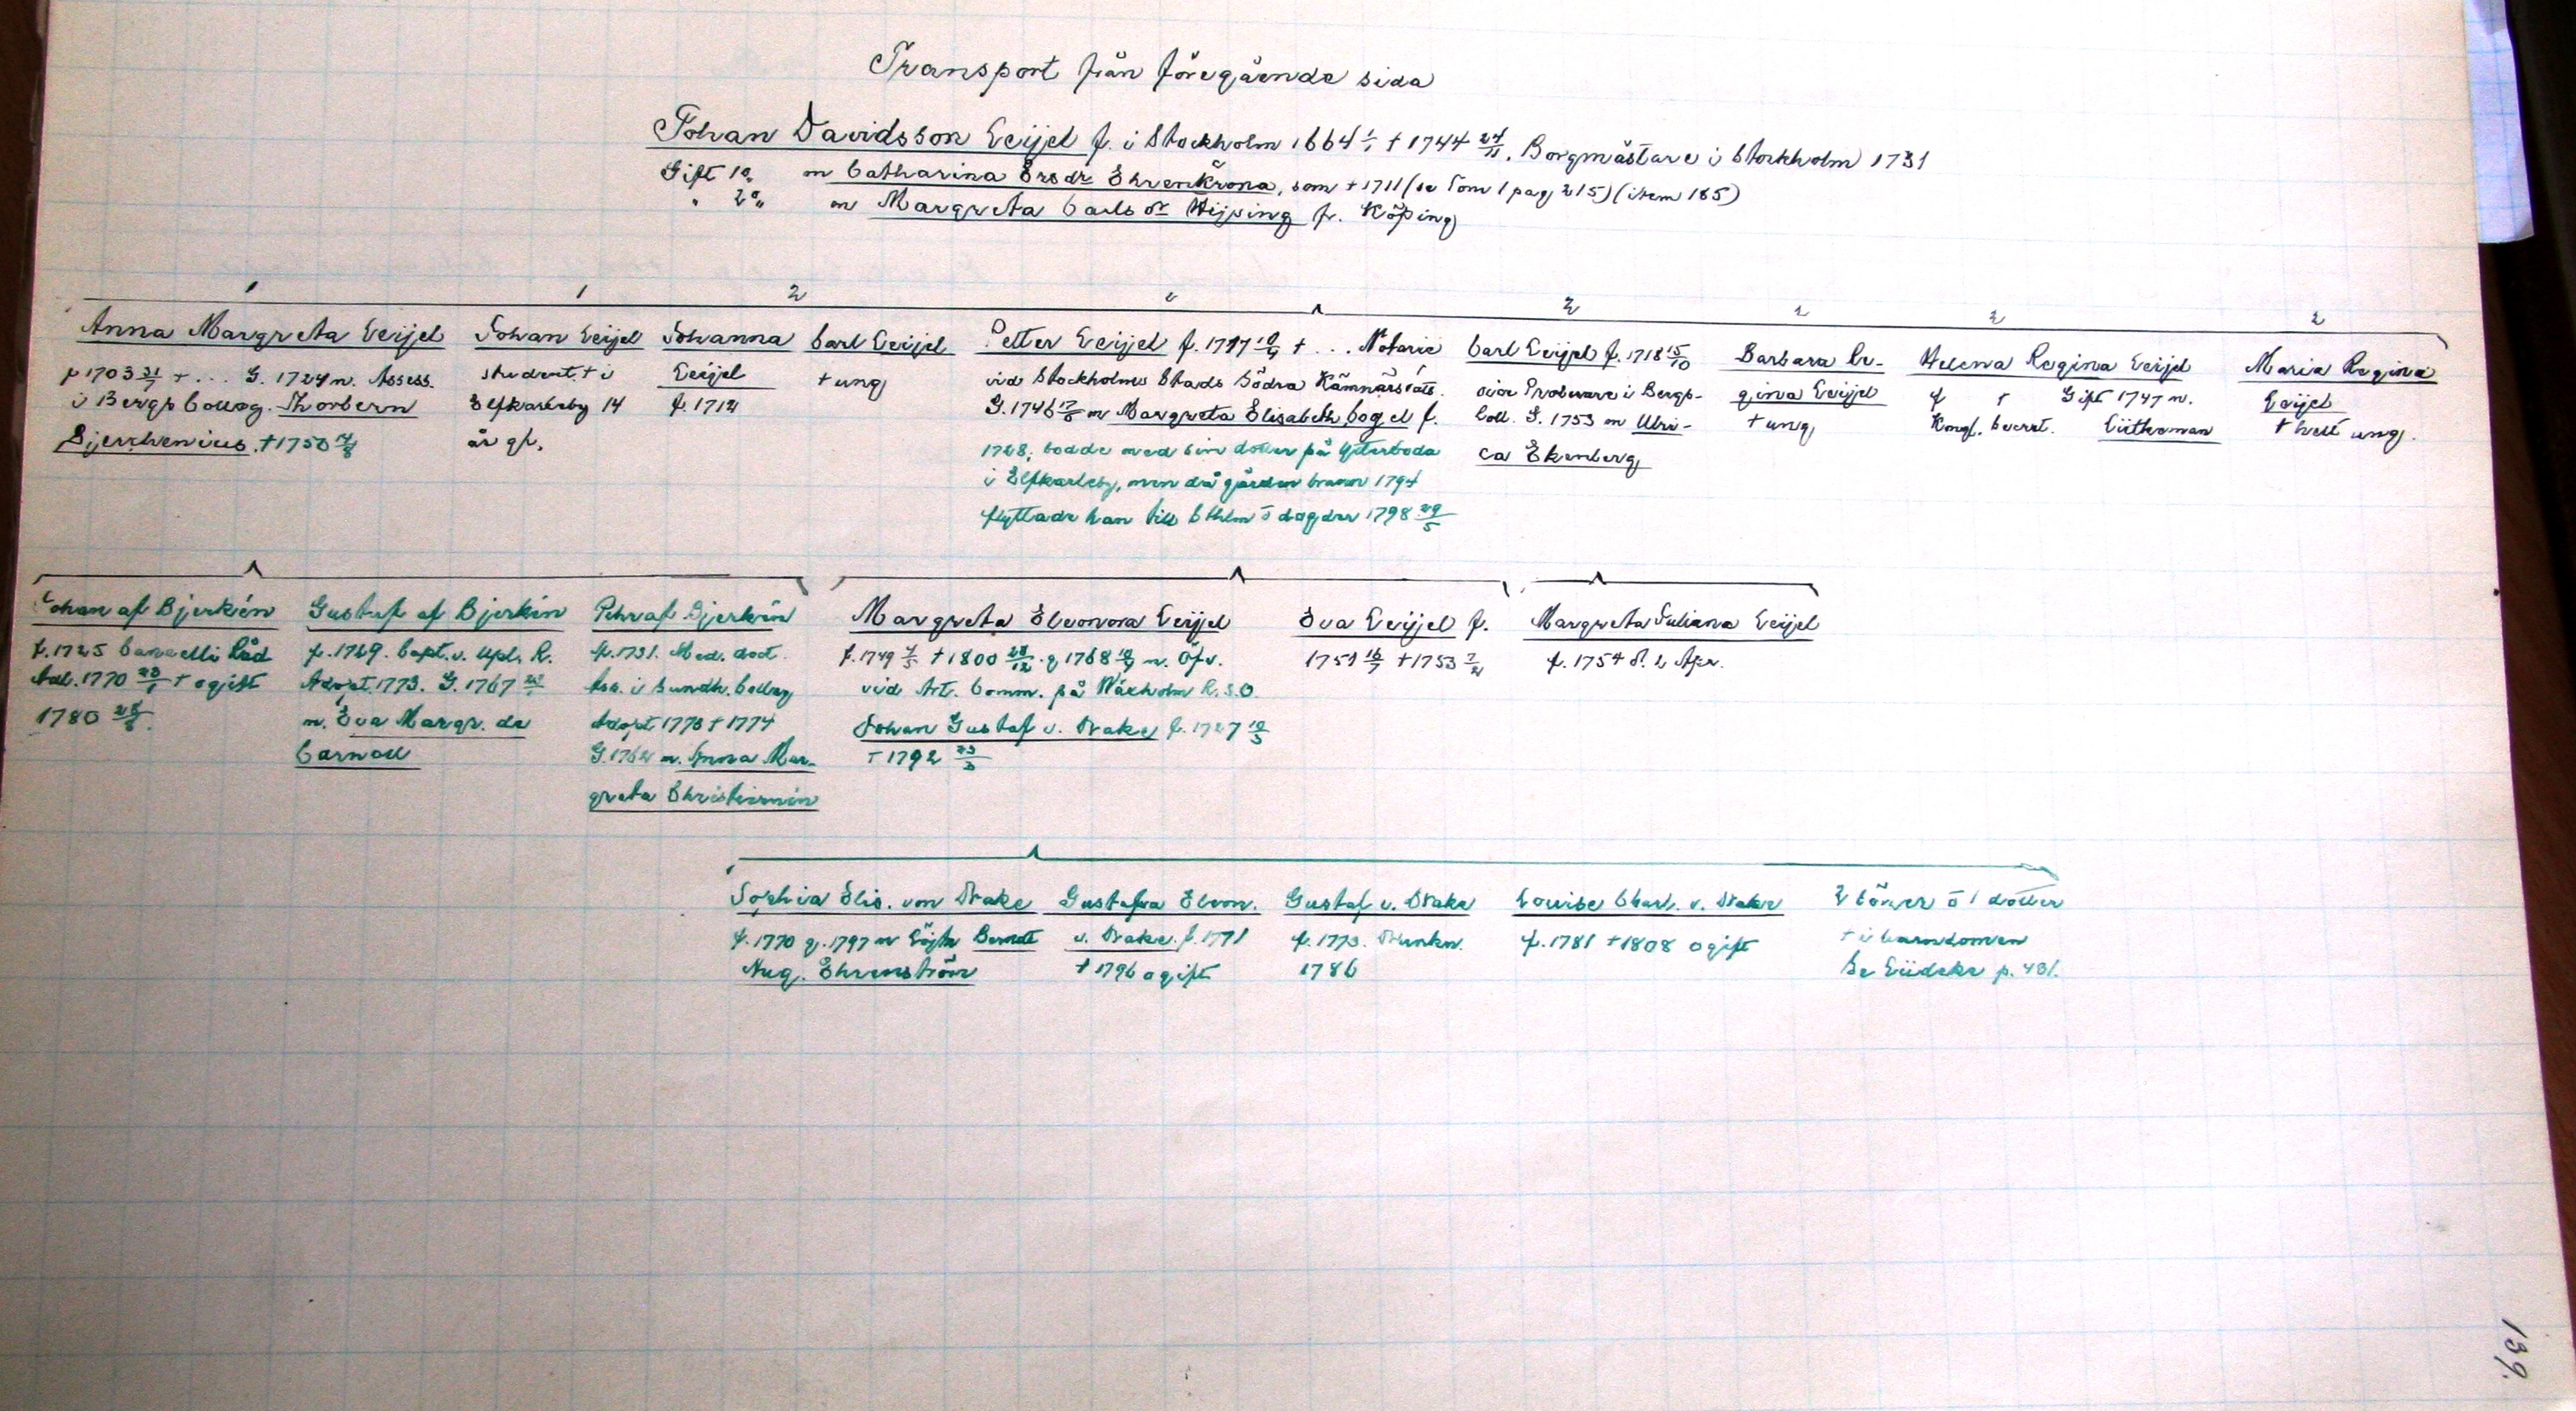 Transport från föregående sida
Johan Davidsson Leijel f. i Stockholm 1664 1/1 † 1744 24/11. Borgmästare i Stockholm 1731
Gift 1o m Catharina Ersdr Ehrenkrona, som † 1711 (se Tom 1 pag 215) (item 185)
" 2o m Margreta Carlsdr Hijsing fr. Köping
1 1 2 2 2 2 2
Anna Margreta Leijel
f 1703 31/7 † ... G. 1724 m. Assess.
i Bergs Colleg. Thorbern
Bjerchenius. † 1750
Johan Leijel
student. † i
Elfkarleby 14
år gl.
Johanna
Leijel
f. 1712
Carl Leijel
† ung
Petter Leijel f. 1717 † ... Notarie
vid Stockholms Stads Södra Kämnärsrätt.
G. 1746 m Margreta Elisabeth Cogel f.
1728, bodde med sin dotter på Ytterboda
i Elfkarleby, men då gården brann 1794
flyttade han till Sthlm o dog der 1798 29/5
Carl Leijel f. 1718 15/10
vice Proberare i Bergs-
Coll. G. 1753 m Ulri-
ca Ekenberg
Barbara Re-
gina Leijel
† ung
Helena Regina Leijel
f † Gift 1747 m.
Kongl. Secret. Lütheman
Maria Regina
Leijel
† helt ung.
Johan af Bjerkén
f. 1725 Cancelli Råd
Adl. 1770 23/1 † ogift
1780
Gustaf af Bjerkén
f. 1729. Capt. v. Upl. R.
Adopt. 1773. G. 1767
m. Eva Margr. de
Carnall
Pehr af Bjerkén
f. 1731. Med. doct.
Ass. i Sundh. Colleg
Adopt 1773 † 1774
G. 1762 m. Anna Mar-
greta Christiernin
Margreta Eleonora Leijel
f. 1749 † 1800 28/12. g 1768 m. Öfv.
vid Art. Comm. på Waxholm R. S. O.
Johan Gustaf v. Drake f. 1727
† 1792 23/3
Eva Leijel f.
1751 16/7 † 1753 7/2
Margreta Juliana Leijel
f. 1754 d. 2 Apr.
Sophia Elis. von Drake
f. 1770 g. 1797 m Löjtn Berndt
Aug. Ehrenström
Gustafva Eleon.
v. Drake. f. 1771
† 1796 ogift
Gustaf v. Drake
f. 1773. Drunkn.
1786
Louise Charl. v. Drake
f. 1781 † 1808 ogift
2 söner o 1 dotter
† i barndomen
Se Lüdeke p. 431.
139.